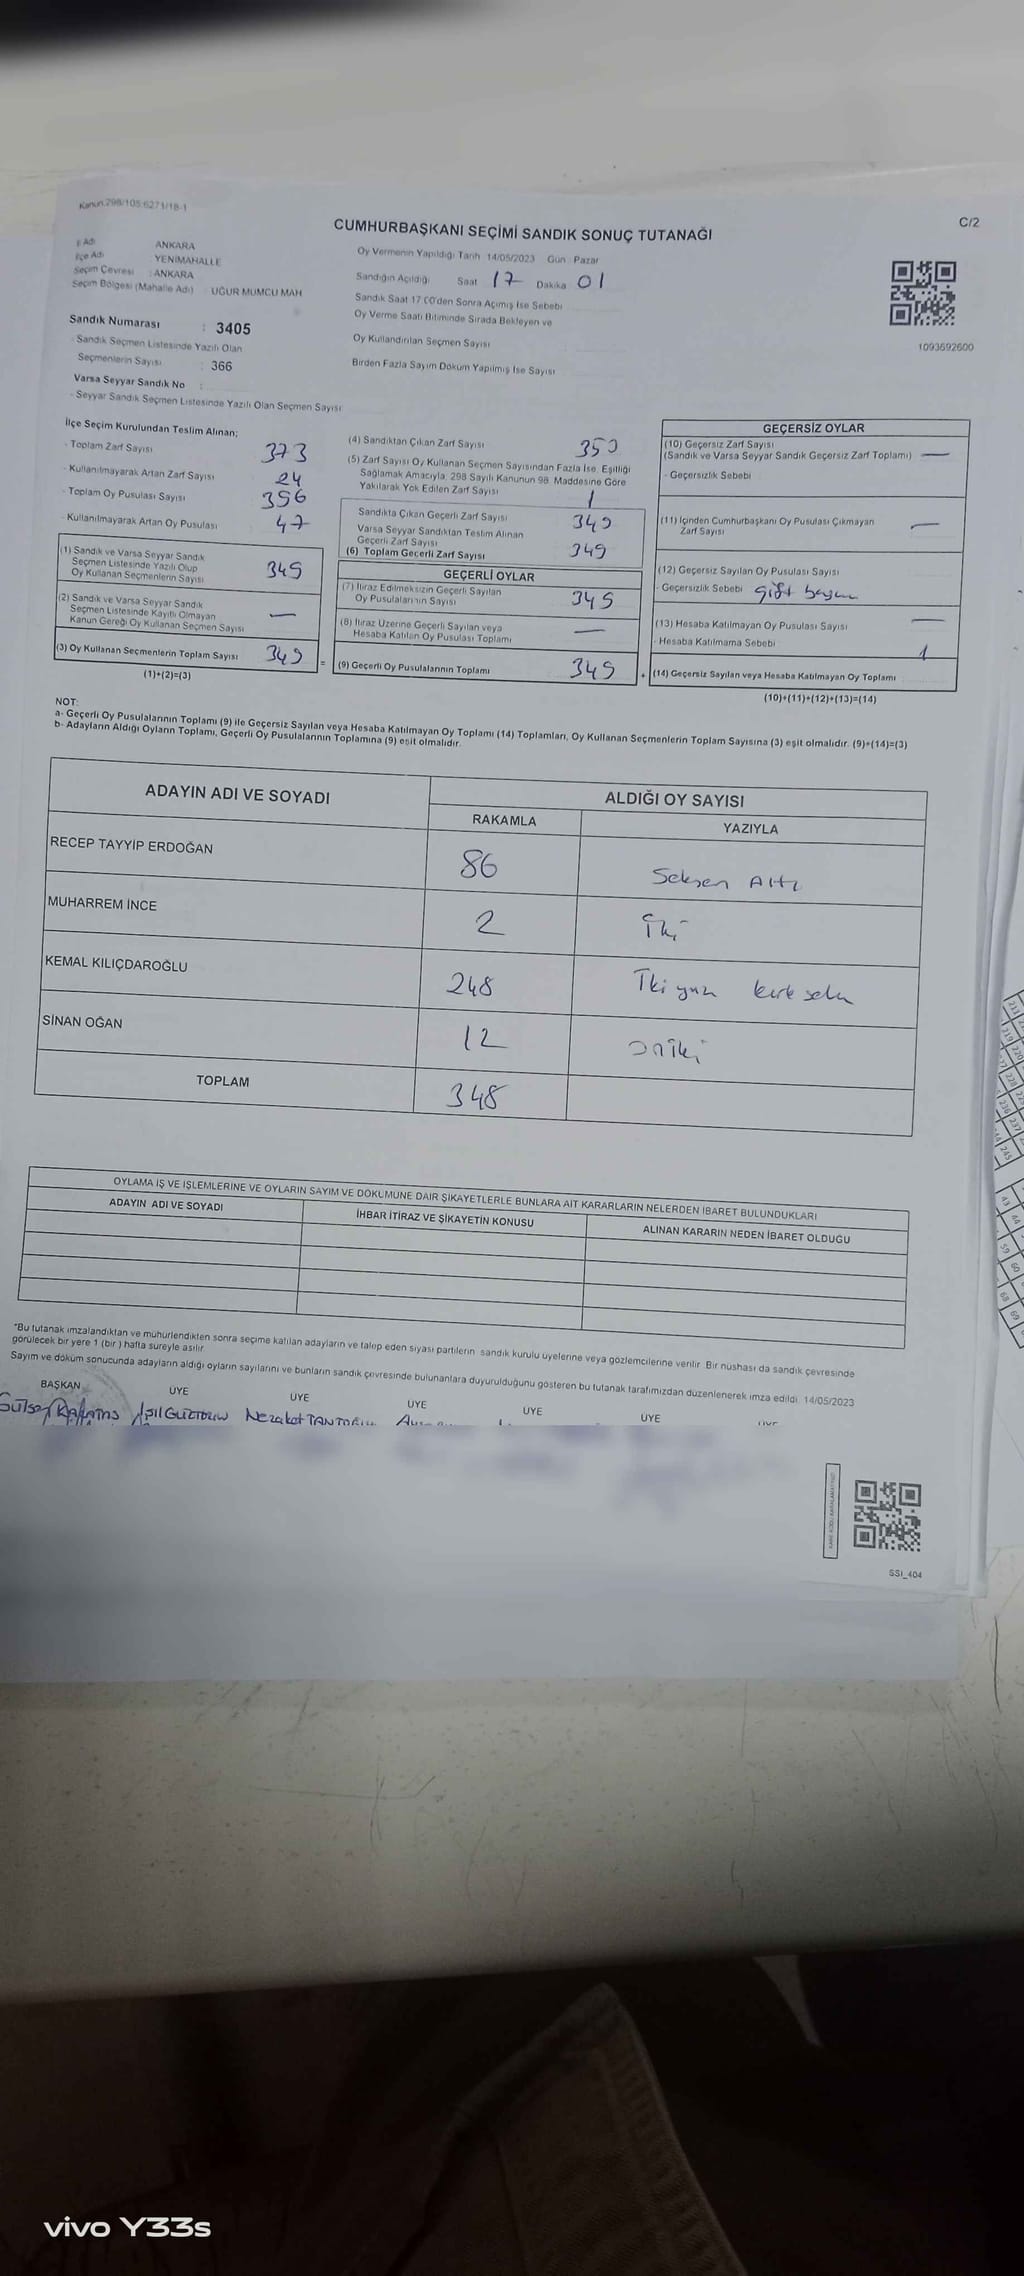 Kanun:298/105:6271/18-1
C/2
CUMHURBAŞKANI SEÇİMİ SANDIK SONUÇ TUTANAĞI
İl Adı ANKARA
İlçe Adı YENİMAHALLE
Seçim Çevresi : ANKARA
Seçim Bölgesi (Mahalle Adı) : UĞUR MUMCU MAH
Sandık Numarası : 3405
- Sandık Seçmen Listesinde Yazılı Olan
Seçmenlerin Sayısı : 366
Varsa Seyyar Sandık No :
- Seyyar Sandık Seçmen Listesinde Yazılı Olan Seçmen Sayısı
Oy Vermenin Yapıldığı Tarih 14/05/2023 Gün : Pazar
Sandığın Açıldığı Saat 17 Dakika 01
Sandık Saat 17:00'den Sonra Açımış İse Sebebi
Oy Verme Saati Bitiminde Sırada Bekleyen ve
Oy Kullandırılan Seçmen Sayısı
Birden Fazla Sayım Döküm Yapılmış İse Sayısı
1093692600
İlçe Seçim Kurulundan Teslim Alınan;
- Toplam Zarf Sayısı 373
- Kullanılmayarak Artan Zarf Sayısı 24
- Toplam Oy Pusulası Sayısı 396
- Kullanılmayarak Artan Oy Pusulası 47
(1) Sandık ve Varsa Seyyar Sandık
Seçmen Listesinde Yazılı Olup
Oy Kullanan Seçmenlerin Sayısı 349
(2) Sandık ve Varsa Seyyar Sandık
Seçmen Listesinde Kayıtlı Olmayan
Kanun Gereği Oy Kullanan Seçmen Sayısı —
(3) Oy Kullanan Seçmenlerin Toplam Sayısı 349 =
(1)+(2)=(3)
(4) Sandıktan Çıkan Zarf Sayısı 350
(5) Zarf Sayısı Oy Kullanan Seçmen Sayısından Fazla İse, Eşitliği
Sağlamak Amacıyla, 298 Sayılı Kanunun 98. Maddesine Göre
Yakılarak Yok Edilen Zarf Sayısı 1
Sandıkta Çıkan Geçerli Zarf Sayısı 349
Varsa Seyyar Sandıktan Teslim Alınan
Geçerli Zarf Sayısı
(6) Toplam Geçerli Zarf Sayısı 349
GEÇERLİ OYLAR
(7) İtiraz Edilmeksizin Geçerli Sayılan
Oy Pusulalarının Sayısı 349
(8) İtiraz Üzerine Geçerli Sayılan veya
Hesaba Katılan Oy Pusulası Toplamı —
(9) Geçerli Oy Pusulalarının Toplamı 349 +
GEÇERSİZ OYLAR
(10) Geçersiz Zarf Sayısı
(Sandık ve Varsa Seyyar Sandık Geçersiz Zarf Toplamı) —
- Geçersizlik Sebebi
(11) İçinden Cumhurbaşkanı Oy Pusulası Çıkmayan
Zarf Sayısı —
(12) Geçersiz Sayılan Oy Pusulası Sayısı
- Geçersizlik Sebebi Çift basım
(13) Hesaba Katılmayan Oy Pusulası Sayısı —
- Hesaba Katılmama Sebebi 1
(14) Geçersiz Sayılan veya Hesaba Katılmayan Oy Toplamı
(10)+(11)+(12)+(13)=(14)
NOT:
a- Geçerli Oy Pusulalarının Toplamı (9) ile Geçersiz Sayılan veya Hesaba Katılmayan Oy Toplamı (14) Toplamları, Oy Kullanan Seçmenlerin Toplam Sayısına (3) eşit olmalıdır. (9)+(14)=(3)
b- Adayların Aldığı Oyların Toplamı, Geçerli Oy Pusulalarının Toplamına (9) eşit olmalıdır.
ADAYIN ADI VE SOYADI ALDIĞI OY SAYISI
RAKAMLA YAZIYLA
RECEP TAYYİP ERDOĞAN 86 Seksen Altı
MUHARREM İNCE 2 İki
KEMAL KILIÇDAROĞLU 248 İkiyüz kırk sekiz
SİNAN OĞAN 12 Oniki
TOPLAM 348
OYLAMA İŞ VE İŞLEMLERİNE VE OYLARIN SAYIM VE DÖKÜMÜNE DAİR ŞİKAYETLERLE BUNLARA AİT KARARLARIN NELERDEN İBARET BULUNDUKLARI
ADAYIN ADI VE SOYADI İHBAR İTİRAZ VE ŞİKAYETİN KONUSU ALINAN KARARIN NEDEN İBARET OLDUĞU
*Bu tutanak imzalandıktan ve mühürlendikten sonra seçime katılan adayların ve talep eden siyasi partilerin sandık kurulu üyelerine veya gözlemcilerine verilir. Bir nüshası da sandık çevresinde
görülecek bir yere 1 (bir) hafta süreyle asılır.
Sayım ve döküm sonucunda adayların aldığı oyların sayılarını ve bunların sandık çevresinde bulunanlara duyurulduğunu gösteren bu tutanak tarafımızdan düzenlenerek imza edildi. 14/05/2023
BAŞKAN ÜYE ÜYE ÜYE ÜYE ÜYE
SSI_404
vivo Y33s